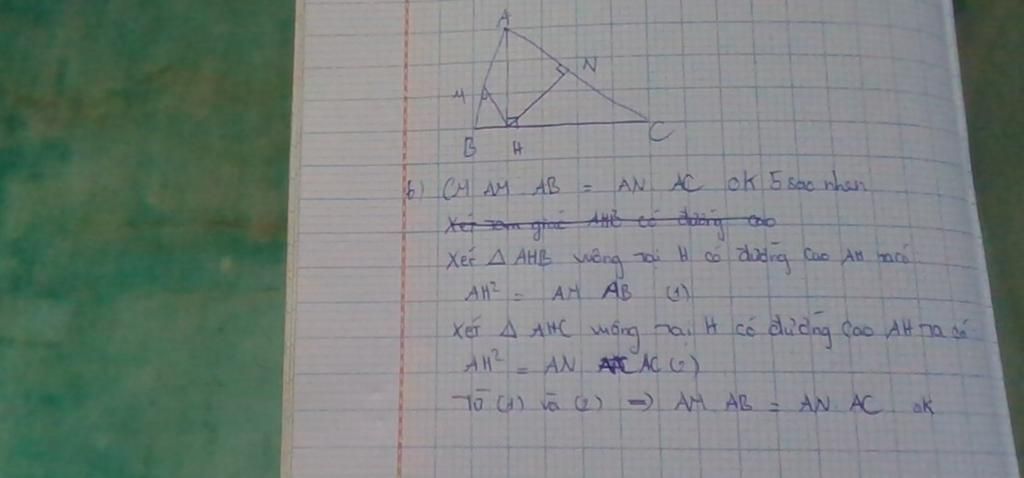 A
M
N
B
H
C
b) CM AM AB = AN AC ok 5 sao nhen
Xét tam giác AHB có đường cao
Xét Δ AHB vuông tại H có đường cao AH ta có
AH² = AM AB (1)
Xét Δ AHC vuông tại H có đường cao AH ta có
AH² = AN AC (2)
Từ (1) và (2) => AM AB = AN AC ok